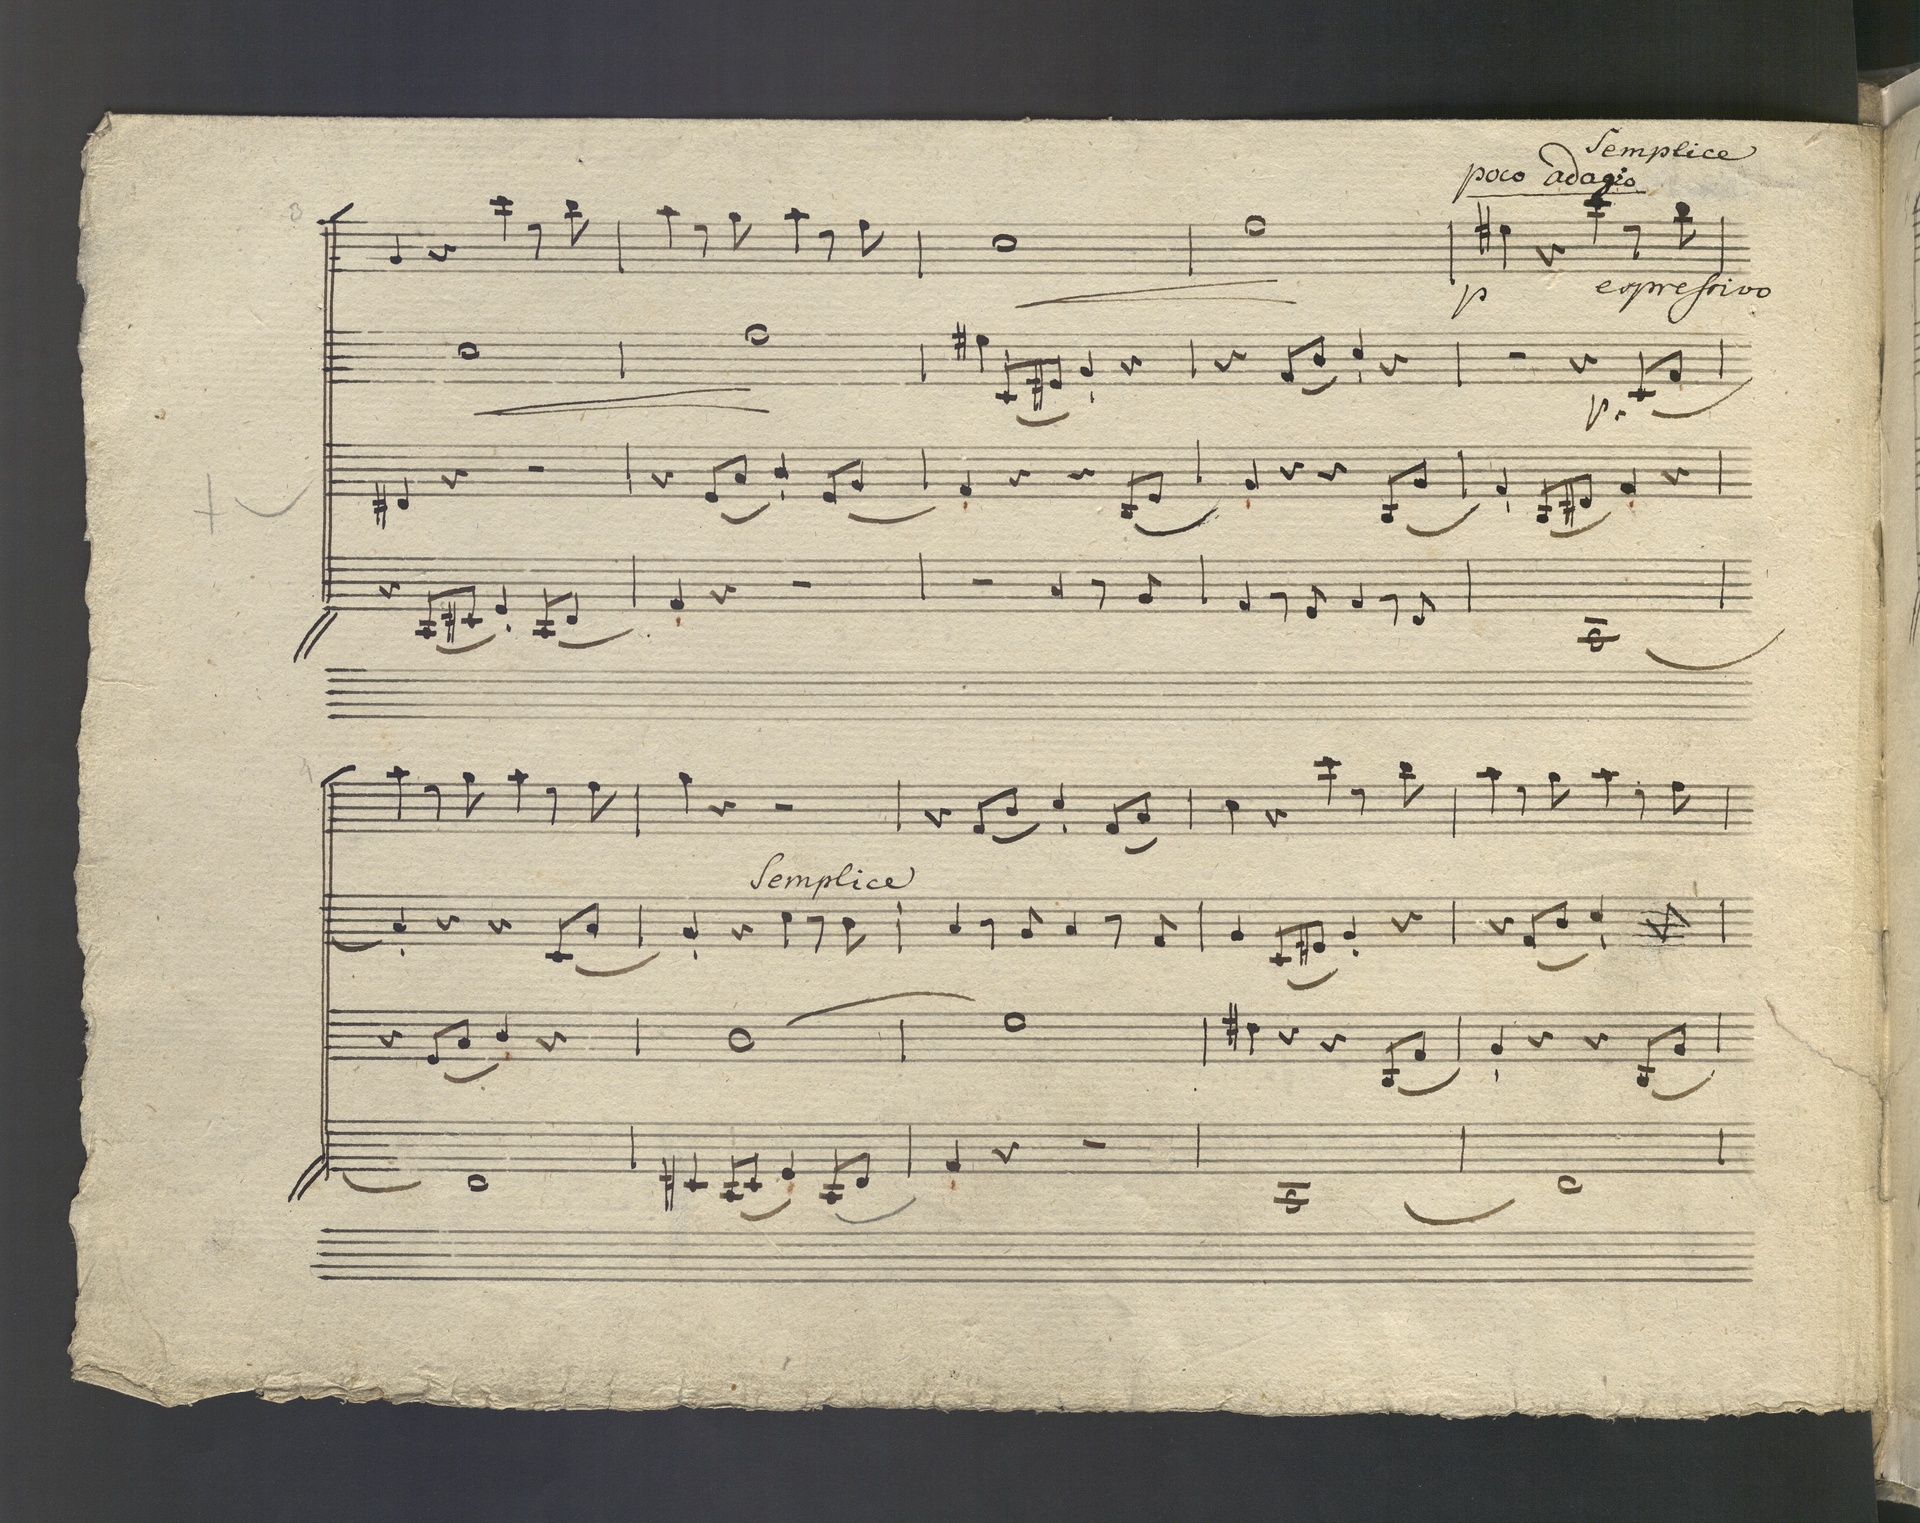 Semplice
poco adagio
3
p
espressivo
p.
4
Semplice